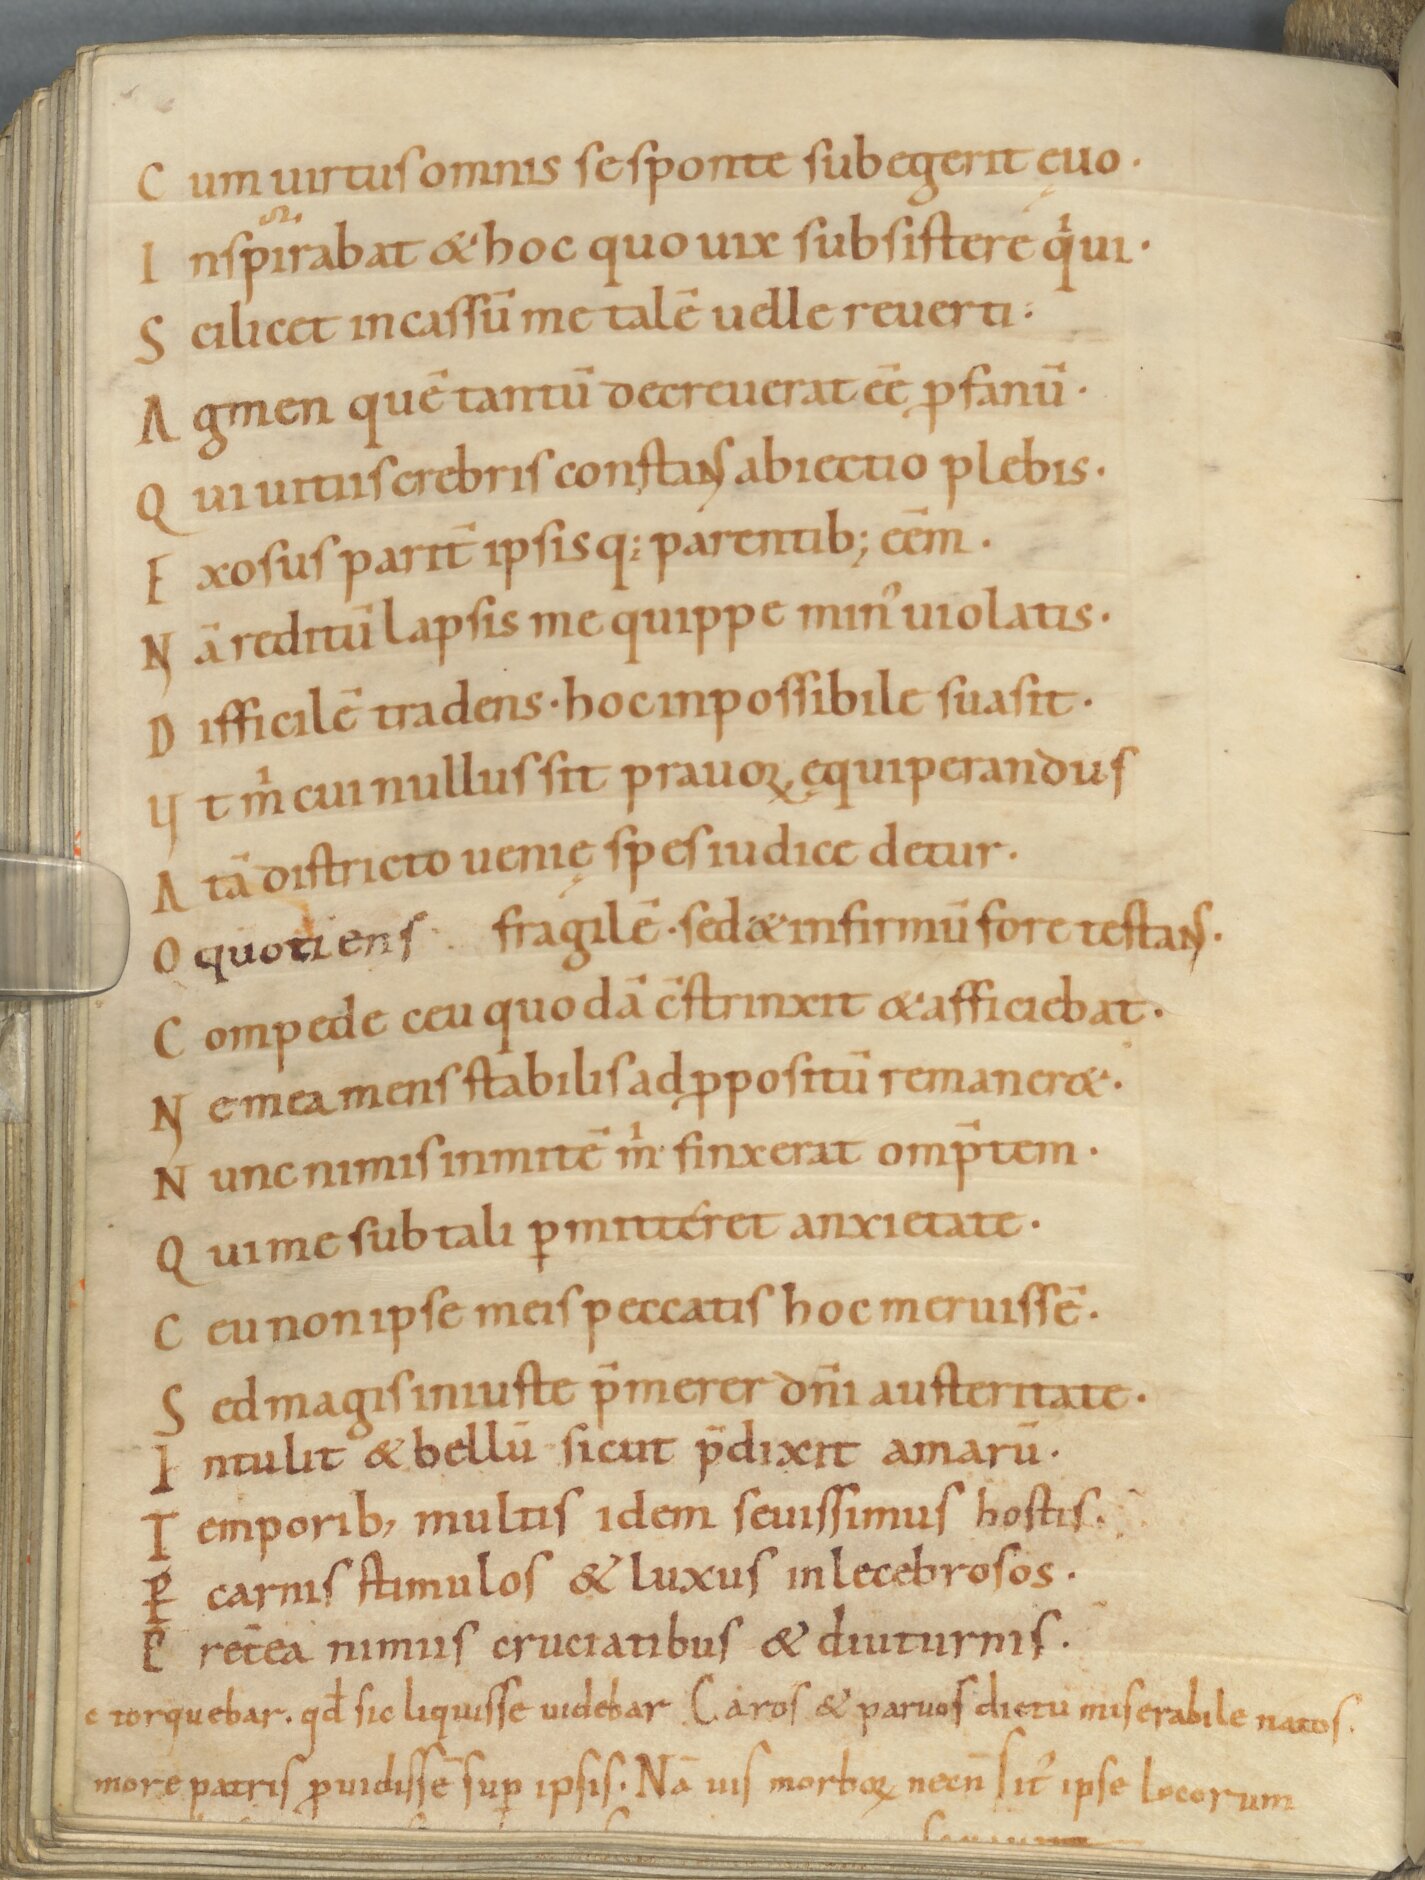 C um uirtus omnis se sponte subegerit ęuo.
I nspirabat & hoc quo uix subsistere qͥui.
S cilicet in cassū me talē uelle reuerti:
A gmen quē tantū decreuerat eē ꝓfanū.
Q ui uitiis crebris constans abiectio plebis.
E xosus parit̄ ipsisq; parentib; eēm.
N ā reditū lapsis me quippe minꝰ uiolatis.
D ifficilē tradens. hoc inpossibile suasit.
U t mͥ cui nullus sit prauoꝝ ęquiperandus
A tā districto uenię spes iudice detur.
O quotiens fragilē. sed & infirmū fore testans.
C ompede ceu quodā c̄strinxit & afficiebat.
N e mea mens stabilis ad ꝓpositū remaner&.
N unc nimis inmitē mͥ finxerat omp̄tem.
Q ui me sub tali ꝑmitteret anxietate.
C eu non ipse meis peccatis hoc meruissē.
S ed magis iniuste p̄merer dn̄i austeritate.
I ntulit & bellū sicut p̄dixit amarū.
T emporib; multis idem seuissimus hostis.
Ꝑ carnis stimulos & luxus inlecebrosos.
P̄ ret̄ea nimiis cruciatibus & diuturnis.
e torquebar. qd̄ sic liquisse uidebar Caros & paruos dictu miserabile natos.
more patris ꝓuidissē suꝑ ipsis. Nā uis morboꝝ necn̄ sitꝰ ipse locorum